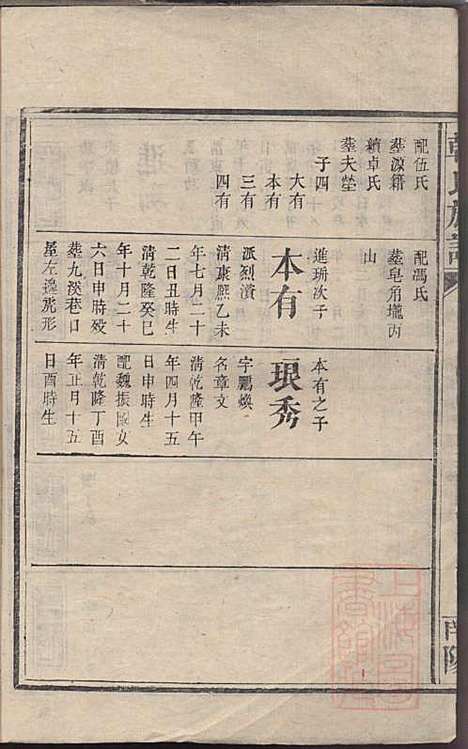 配伍氏
葬源籍
續卓氏
葬夫塋
子四
大有
本有
三有
四有
配馮氏
葬皂角壠丙
山
進珊次子
本有
派烈濆
清康熙乙未
年七月二十
二日丑時生
清乾隆癸巳
年十月二十
六日申時歿
葬九溪巷口
屋左挽𮣰形
本有之子
琅秀
字鸚煥
名章文
清乾隆甲午
年四月十五
日申時生
配魏振國女
清乾隆丁酉
年正月十五
日酉時生
氏族譜